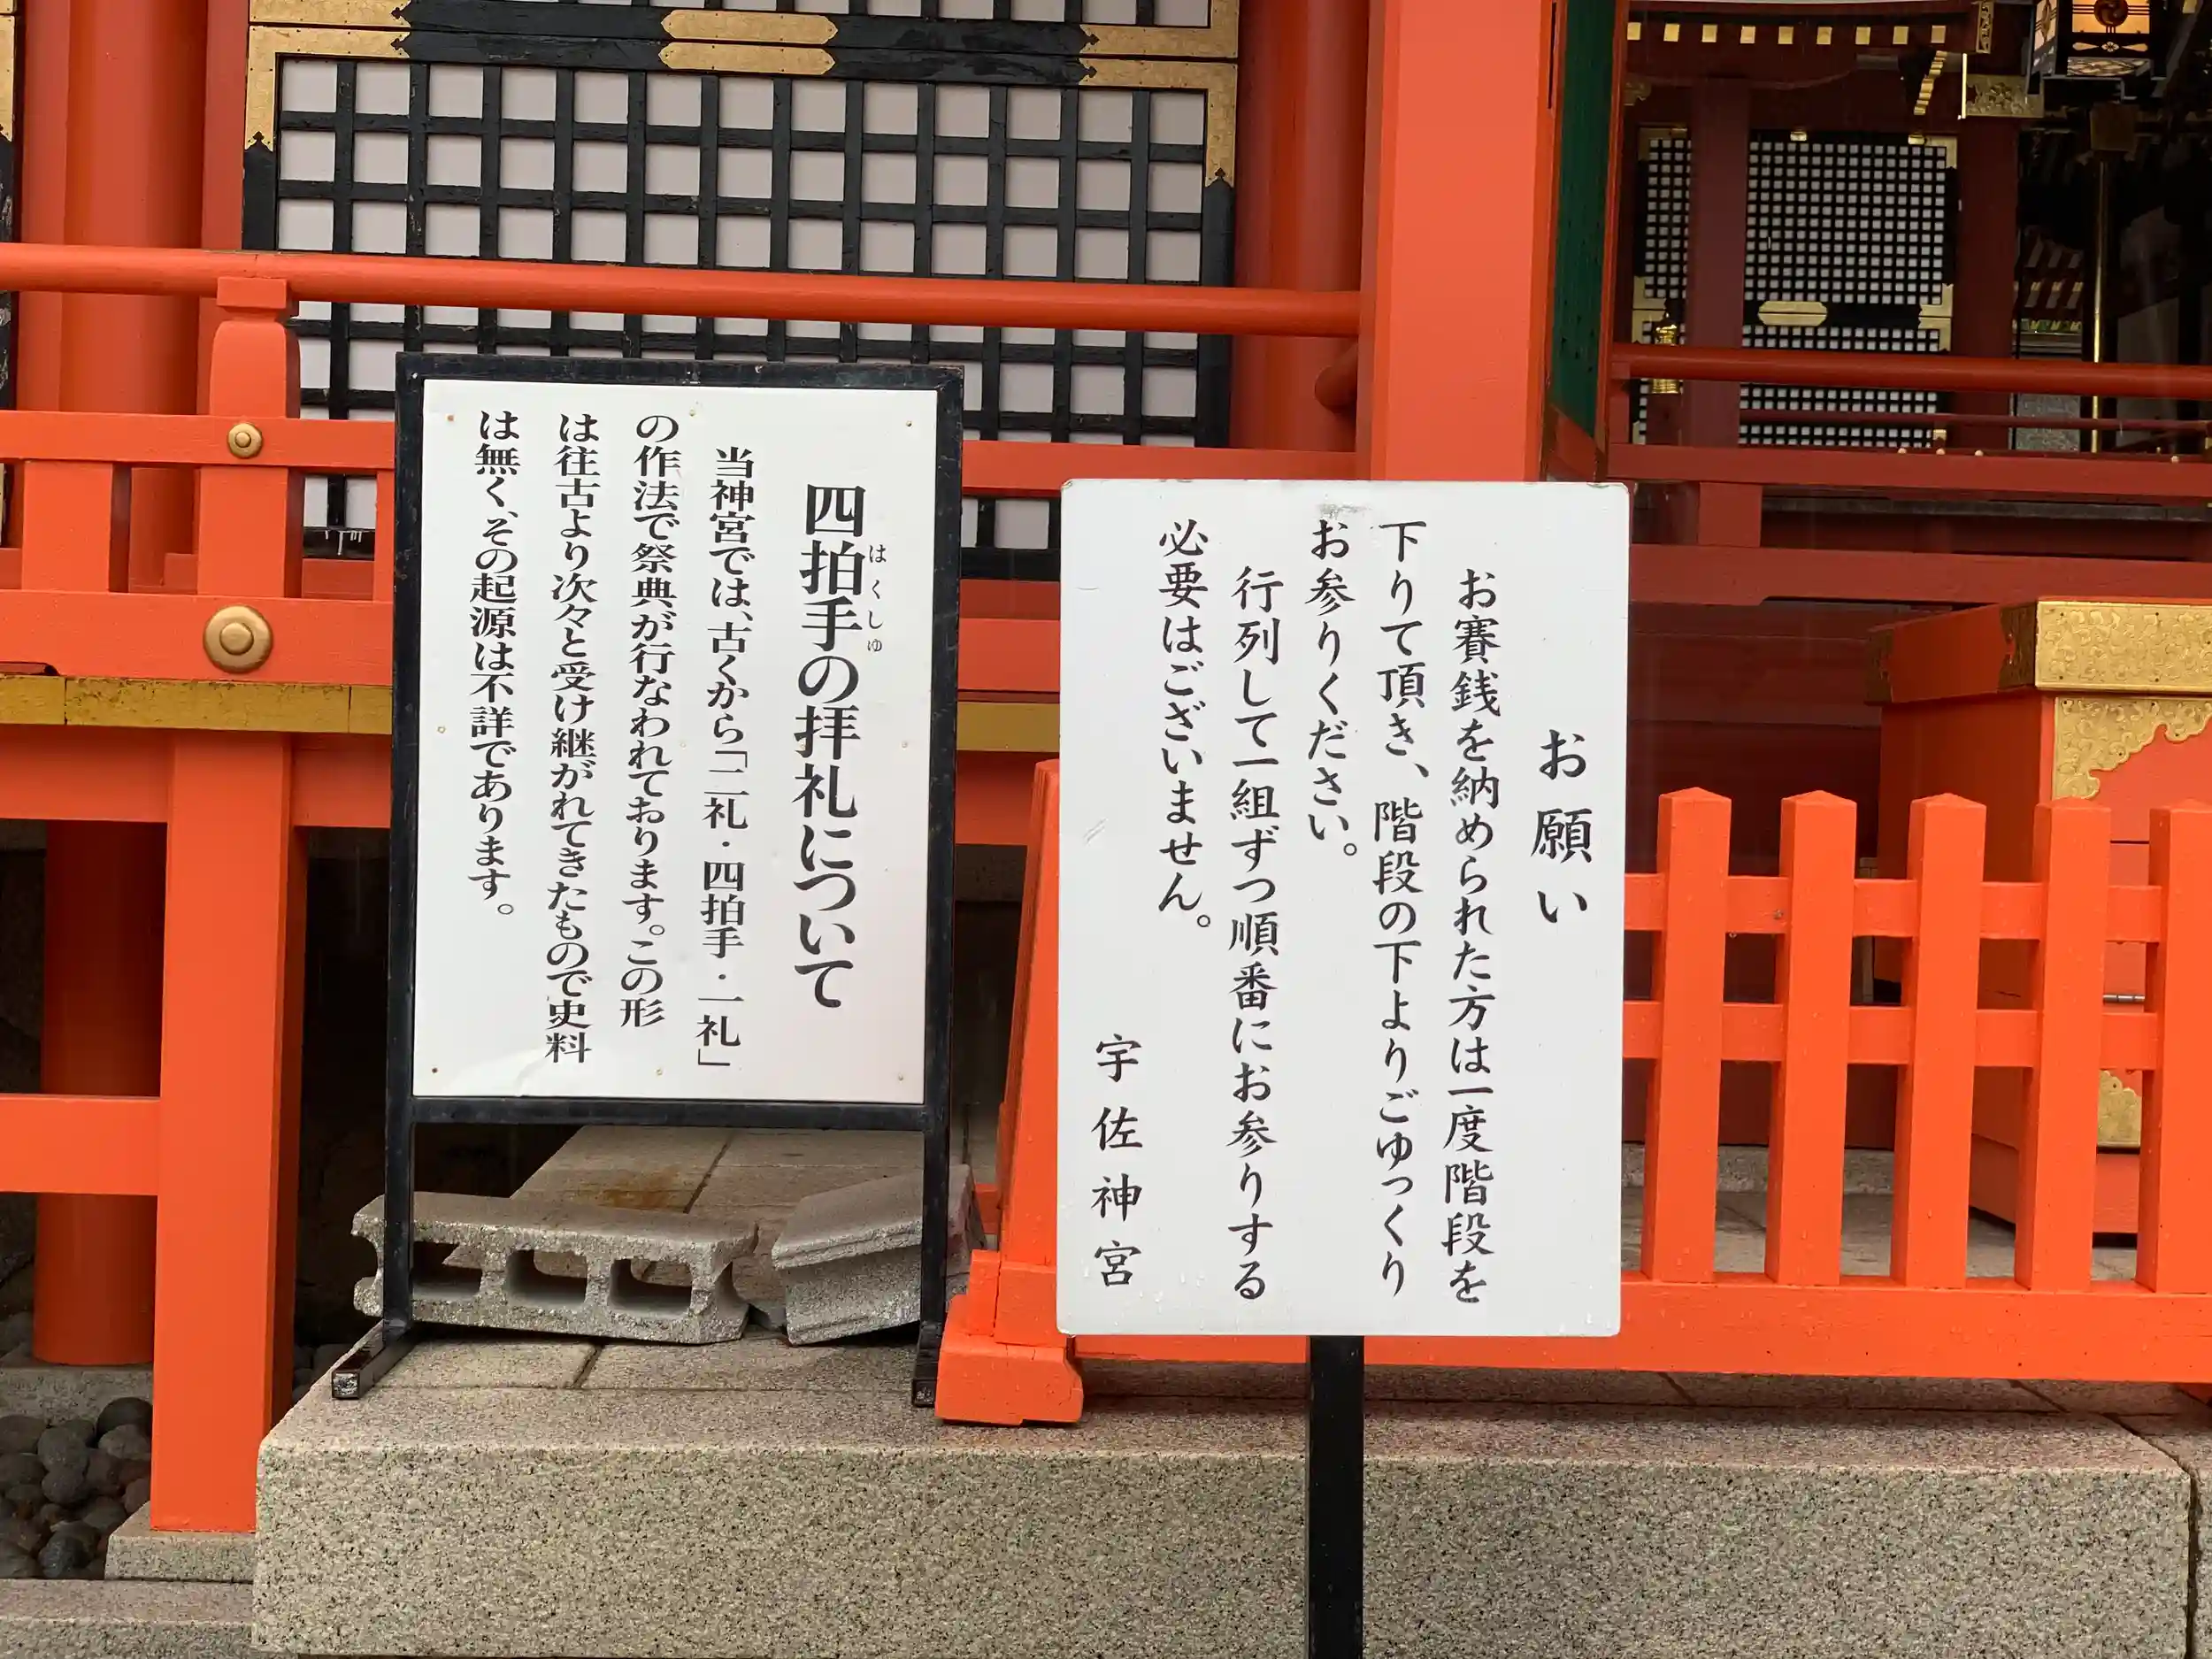 お願い
お賽銭を納められた方は一度階段を
下りて頂き、階段の下よりごゆっくり
お参りください。
行列して一組ずつ順番にお参りする
必要はございません。
宇佐神宮
四拍手の拝礼について
はくしゅ
当神宮では、古くから「二礼・四拍手・一礼」
の作法で祭典が行なわれております。この形
は往古より次々と受け継がれてきたもので史料
は無く、その起源は不詳であります。